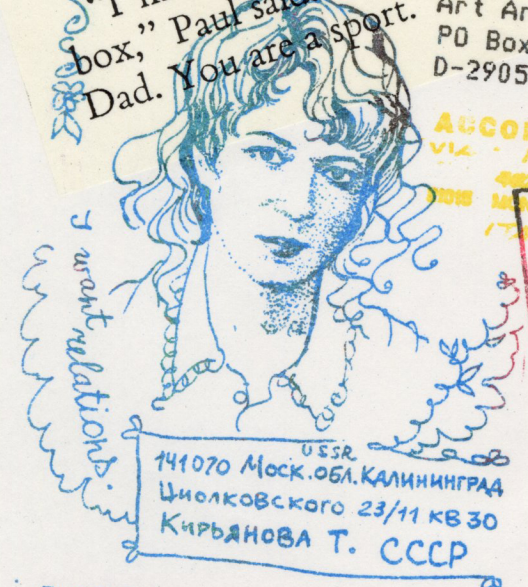 box," Paul said
Dad. You are a sport.
Art
PO Box
D-2905
I want relations.
USSR
141070 Моск.обл.Калининград
Циолковского 23/11 кв 30
Кирьянова Т. СССР